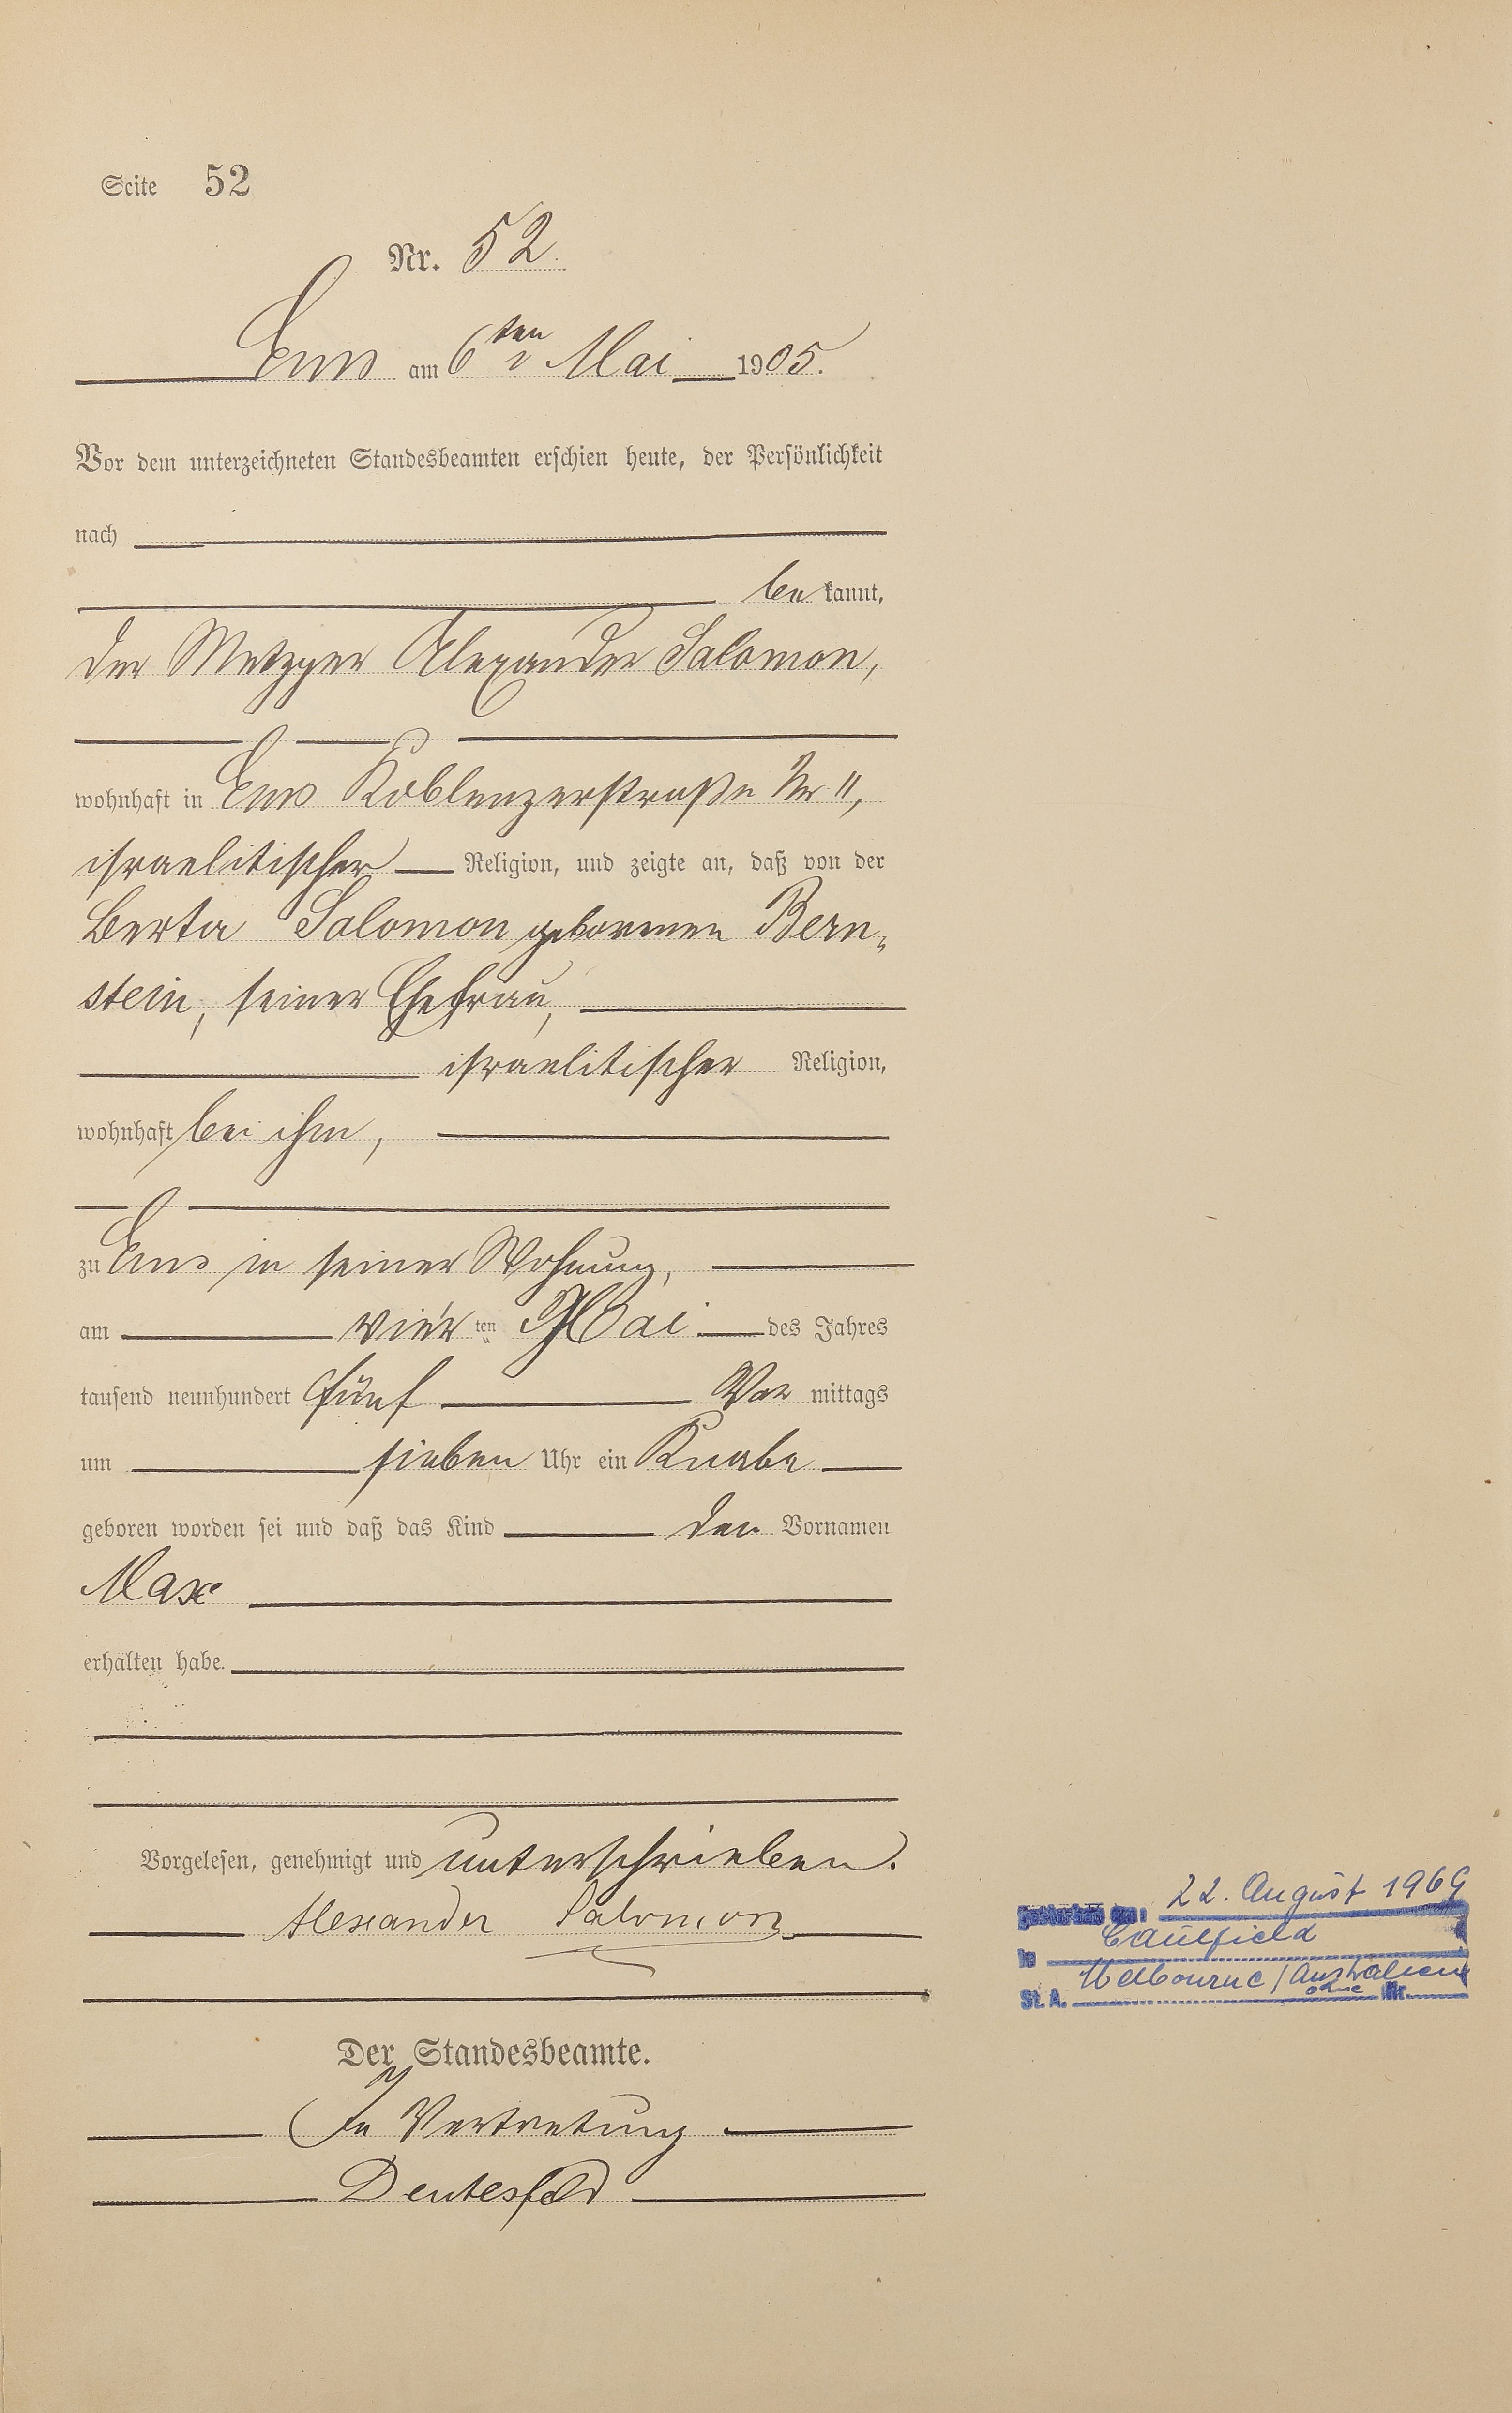 Seite 52
Nr. 52.
Ems am 6ten Mai 1905.
Vor dem unterzeichneten Standesbeamten erschien heute, der Persönlichkeit
nach
be kannt,
der Metzger Alexander Salomon,
wohnhaft in Ems Koblenzerstraße Nr 11,
israelitischer Religion, und zeigte an, daß von der
Berta Salomon geborenen Bern„
stein, seiner Ehefrau,
israelitischer Religion,
wohnhaft bei ihm,
zu Ems in seiner Wohnung,
am vier ten Mai des Jahres
tausend neunhundert fünf Vor mittags
um sieben Uhr ein Knabe
geboren worden sei und daß das Kind den Vornamen
Max
erhalten habe.
Vorgelesen, genehmigt und unterschrieben.
Alexander Salomon
Der Standesbeamte.
In Vertretung
Deutesfeld
Gestorben am: 22. August 1969
in Caulfield
Melbourne / Australien
St. A. ohne Nr.